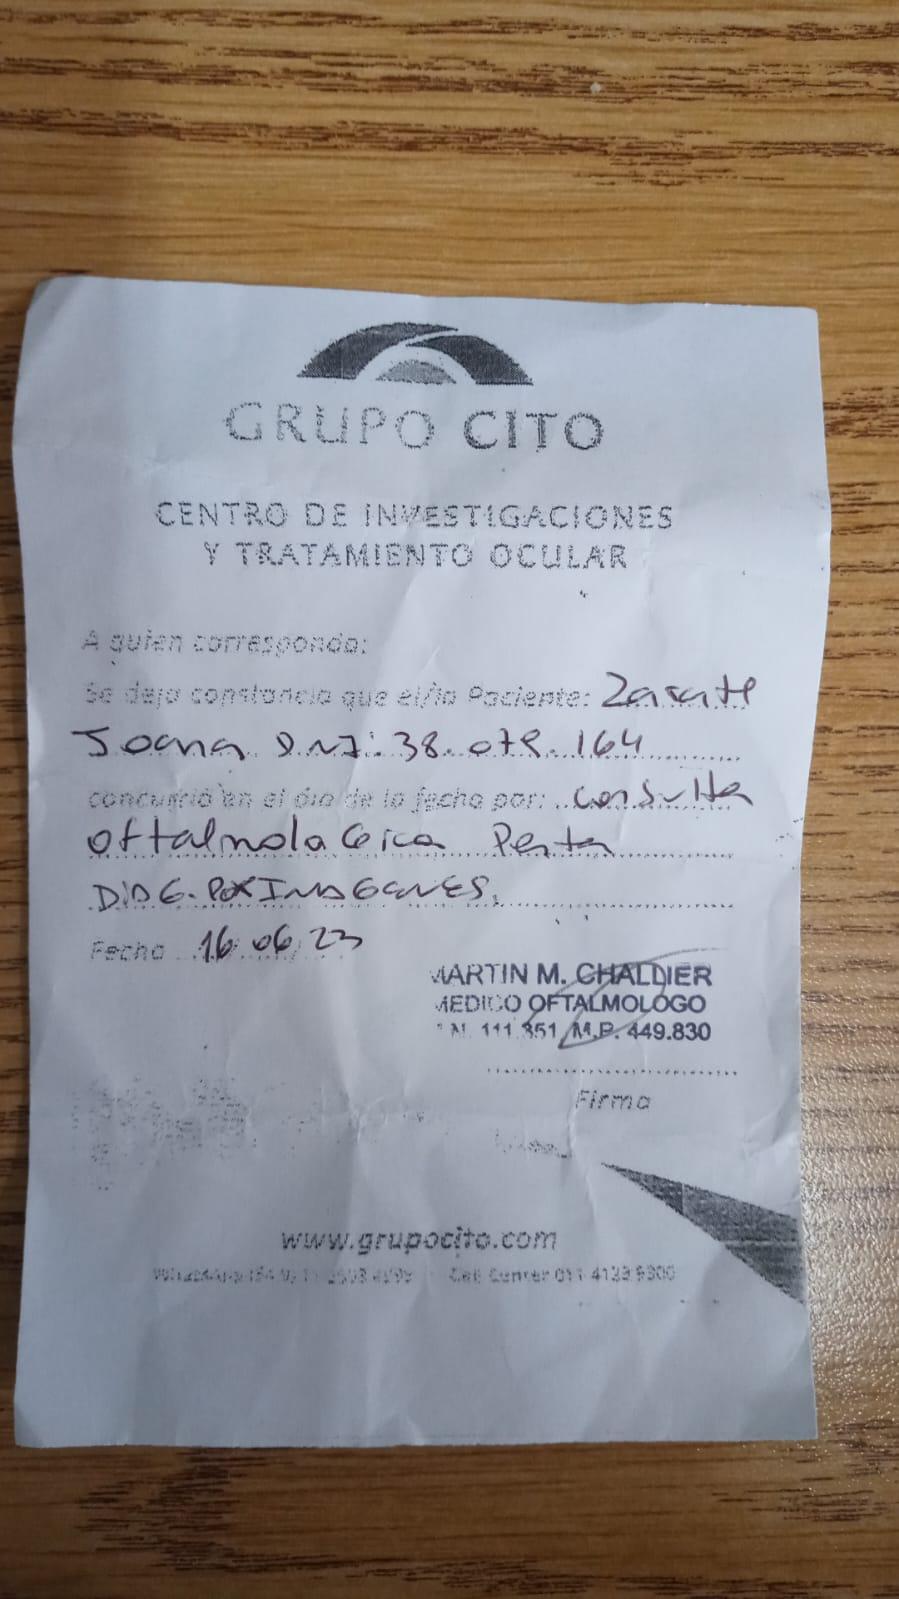 GRUPO CITO
CENTRO DE INVESTIGACIONES
Y TRATAMIENTO OCULAR
A quien corresponda:
Se deja constancia que el/la Paciente: Zarate
Joana DNI: 38.078.164
concurrió en el día de la fecha por: consulta
oftalmologica
DIAG. POR IMAGENES.
Fecha 16/06/23
MARTIN M. CHALLIER
MEDICO OFTALMOLOGO
111.351 M.P. 449.830
Firma
www.grupocito.com
Call Center 011 4129 5300